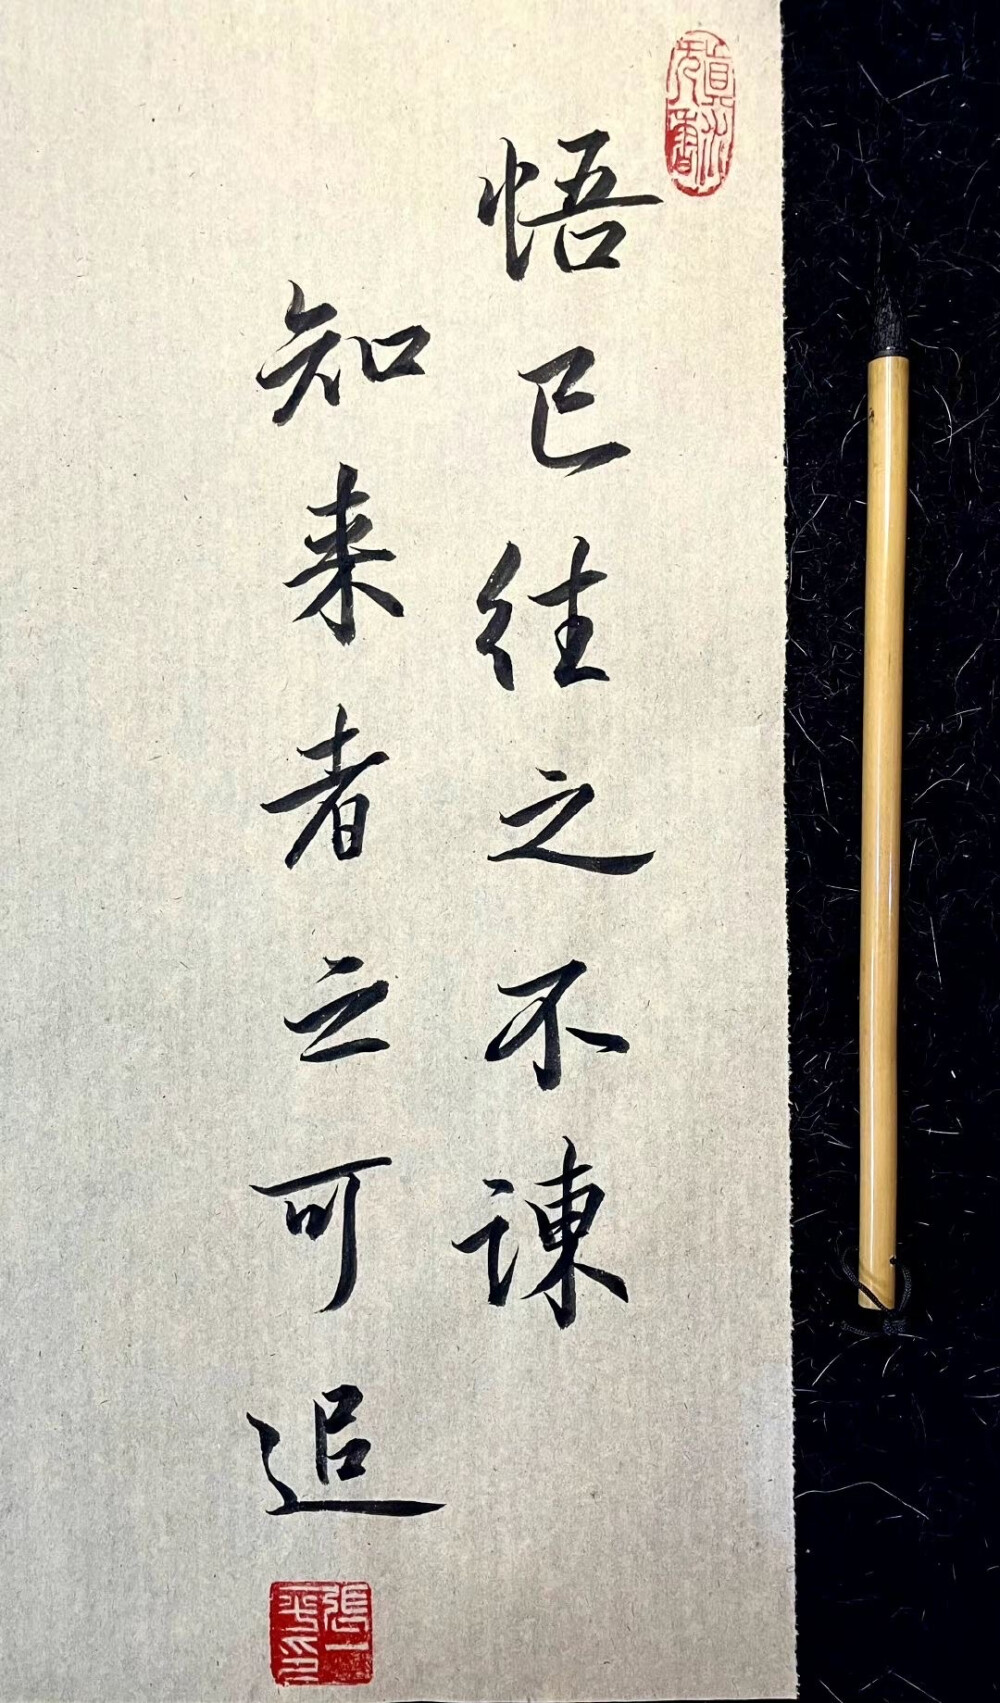 悟已往之不谏
知来者之可追